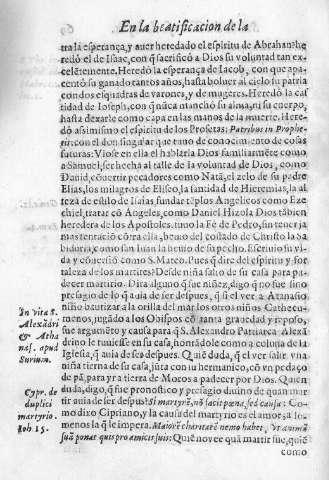 En la beatificacion de la
tra la esperança, y auer heredado el espiritu de Abrahan: he
redó el de Isaac, con q̃ sacrificó a Dios su voluntad tan ex-
celẽtemente. Heredò la esperança de Iacob, con que apa-
centò su ganado tantos años, hasta boluer al cielo su patria
con dos esquadras de varones, y de mugeres. Heredò la cas
tidad de Ioseph, con q̃ nũca manchó su alma, ni su cuerpo,
hasta dexarle como capa en las manos de la muerte. Here-
dò assimismo el espiritu de los Profetas: Patribus in Prophe-
tis: con el don singular que tuuo de conocimiento de cosas
futuras. Viose en ella el hablarla Dios familiarmẽte como
a Samuel, ser hecha al talle de la voluntad de Dios, como
Dauid, cõuertir pecadores como Natã, el zelo de su padre
Elias, los milagros de Eliseo, la santidad de Hieremias, la al
teza de estilo de Isaias, fundar tẽplos Angelicos como Eze
chiel, tratar cõ Angeles, como Daniel. Hizola Dios tãbien
heredera de los Apostoles. tuuo la Fè de Pedro, sin tener ja
mas tentació cõtra ella, beuio del costado de Christo la sa-
biduria, como san Iuan la beuio de su pecho. Escriuio su vi-
da y confessiò como S. Mateo. Pues q̃ dire del espiritu y for
taleza de los martires? Desde niña salio de su casa para pa-
decer martirio. Dira alguno q̃ fue niñez, digo que no fue sino
presagio de lo q̃ auia de ser despues, q̃ si el ver a Atanasio
niño bautizar a la orilla del mar los otros niños Cathecu-
menos, jugado a los Obispos cõ tanta grauedad y reposo,
fue argumẽto y causa para q̃ S. Alexandro Patriarca Alexã
drino le tuuiesse en su casa, honrãdole como a coluna de la
Iglesia, q̃ auia de ser despues. Quiẽ duda, q̃ el ver salir vna
niña tierna de su casa, jũta con su hermanico, cõ vn pedaço
de pã, para yr a tierra de Moros a padecer por Dios. Quien
duda, digo, q̃ fue pronostico y presagio diuino de quan mar
tir auia de ser despues? Si martyrẽ, nõ facit pœna, sed causa: Co-
mo dixo Cipriano, y la causa del martyrio es el amor, a lo-
menos la q̃ le impera. Maiorẽ charitatẽ nemo habet, vt animã
suã ponat quis pro amicis suis: Quiẽ no vee quã martir fue, quiẽ
como
In vita S.
Alexãdri
& Atha
nas. apud
Surium.
Cypr. de
duplici
martyrio.
Ioh 15.